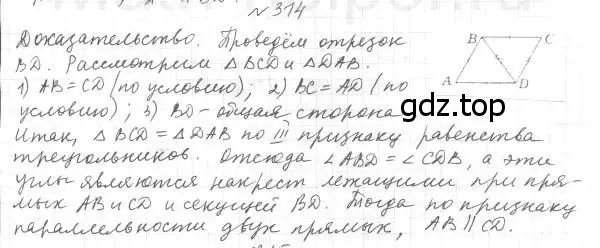 № 314
Доказательство. Проведём отрезок
BD. Рассмотрим △BCD и △DAB.
1) AB = CD (по условию); 2) BC = AD (по
условию); 3) BD - общая сторона
Итак, △BCD = △DAB по III признаку равенства
треугольников. Отсюда ∠ABD = ∠CDB, а эти
углы являются накрест лежащими при пря-
мых AB и CD и секущей BD. Тогда по признаку
параллельности двух прямых, AB || CD.
B C
A D
gdz.top